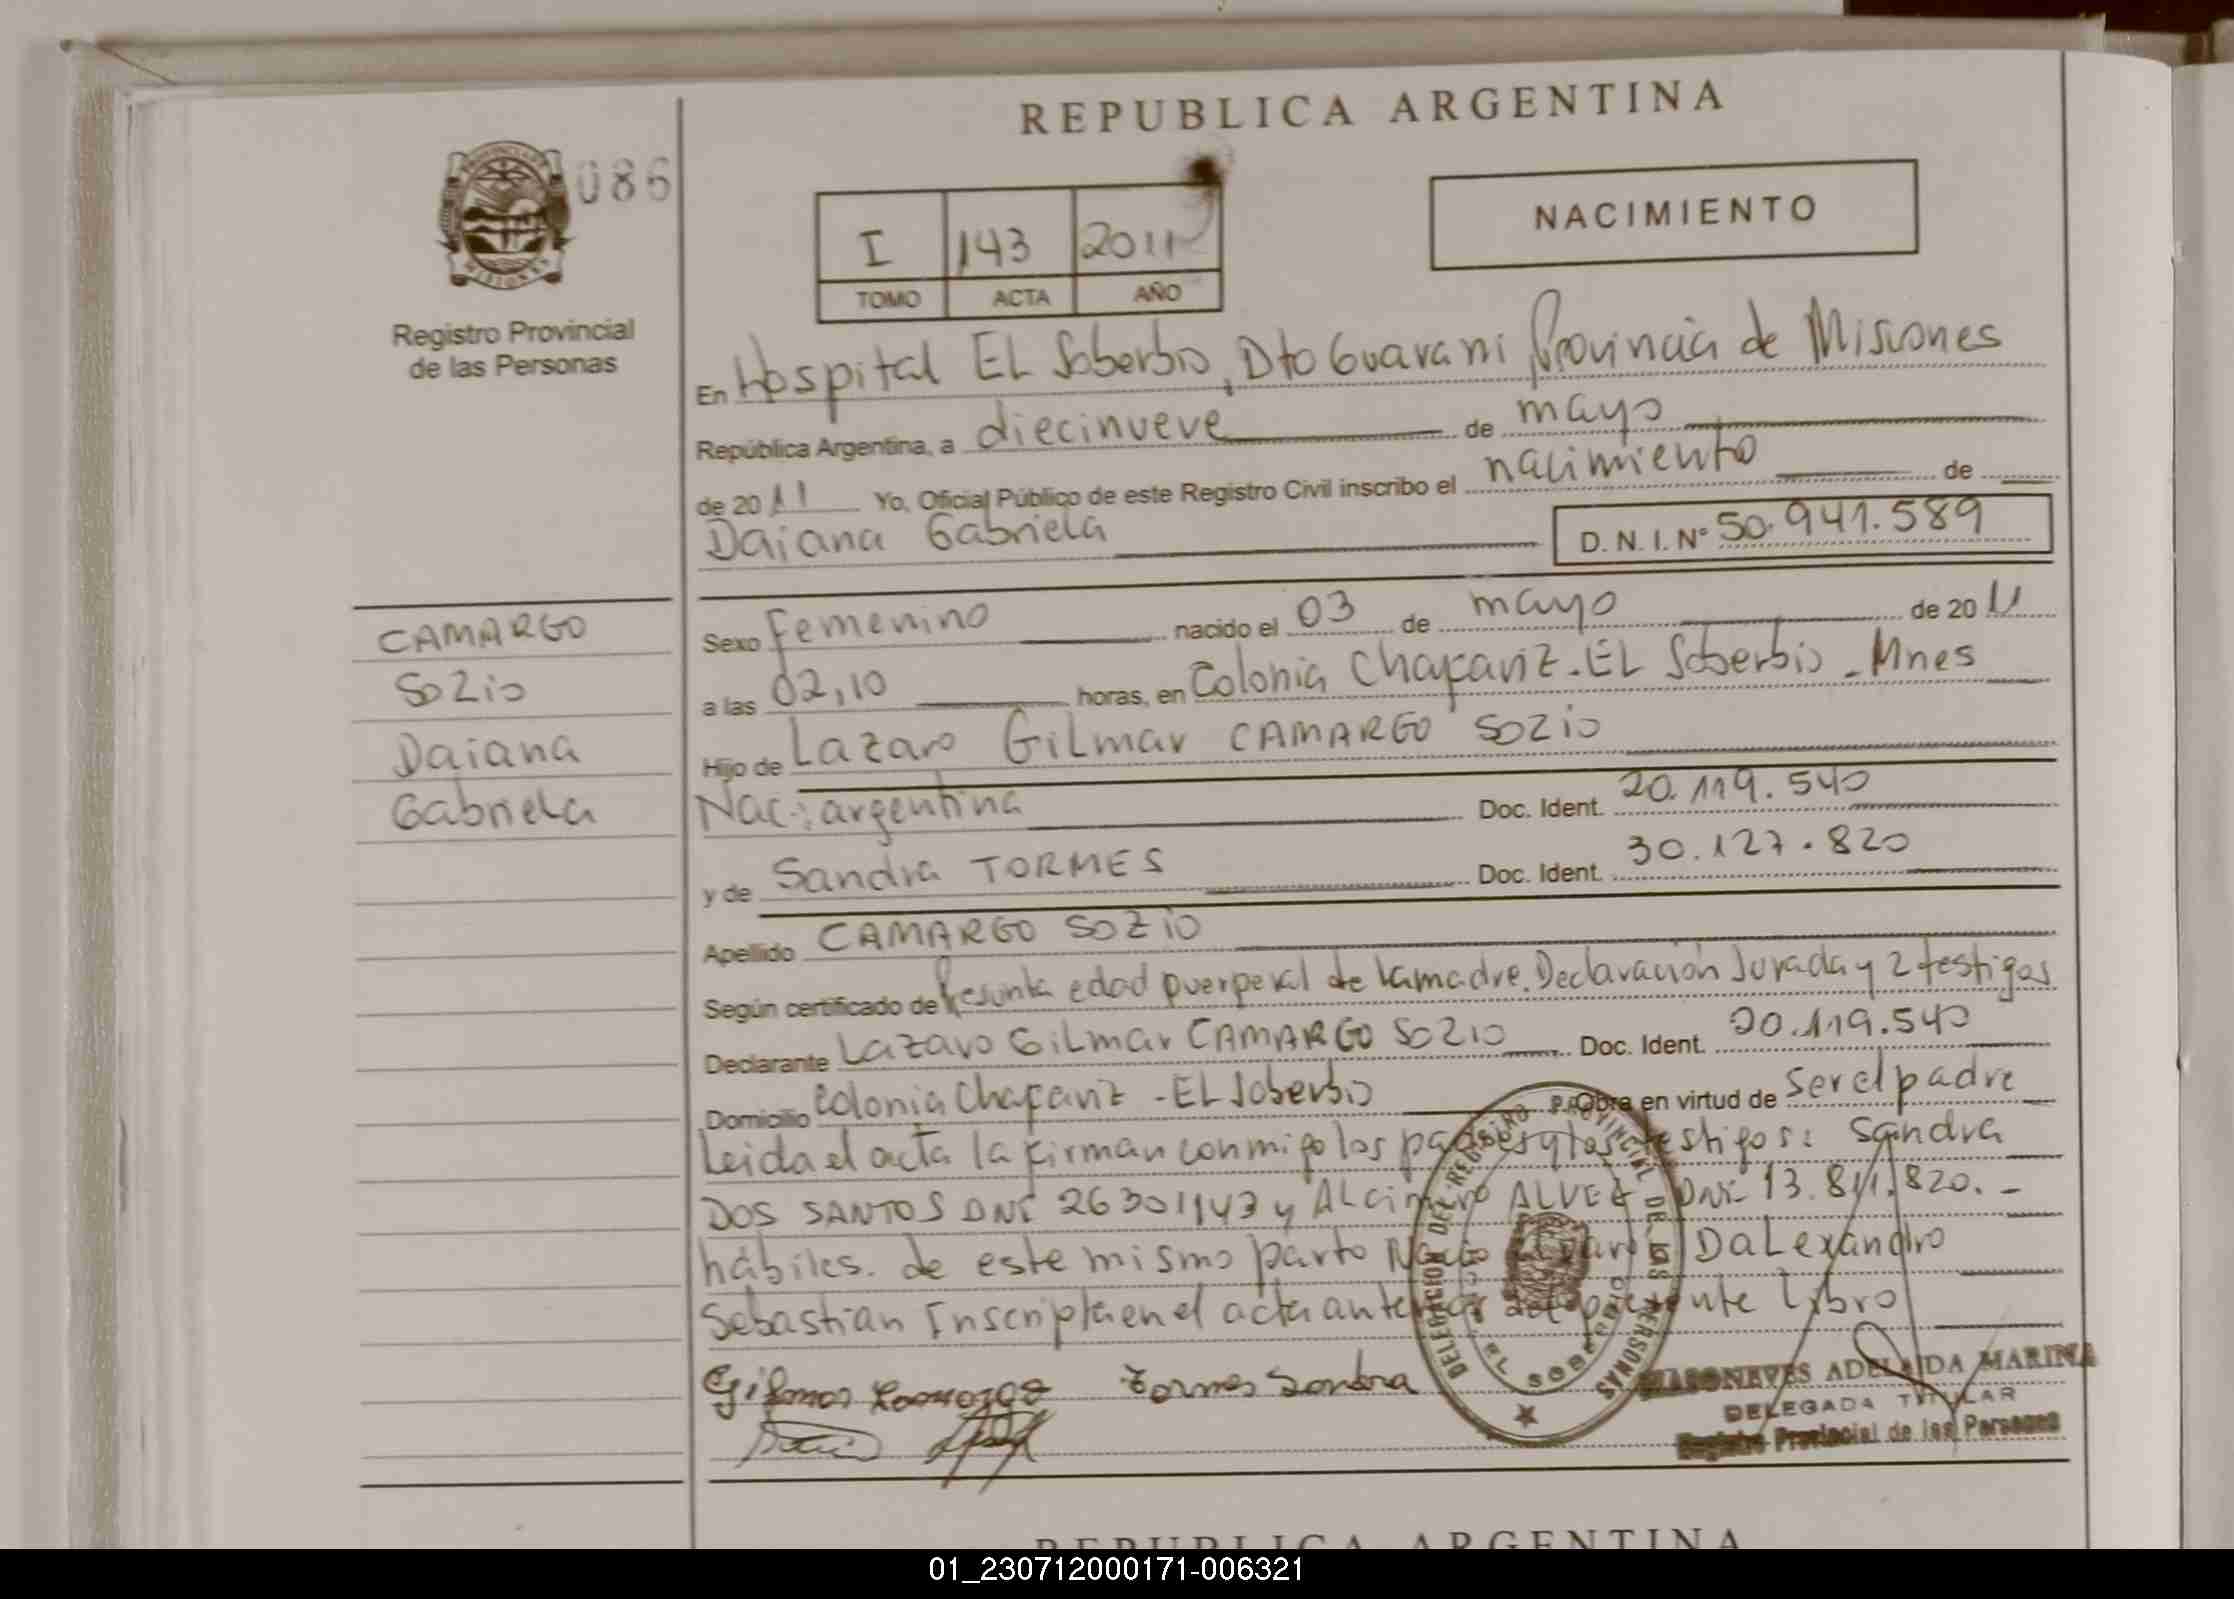 REPUBLICA ARGENTINA
PROVINCIA DE
MISIONES
086
Registro Provincial
de las Personas
I 143 2011
TOMO ACTA AÑO
NACIMIENTO
En Hospital El Soberbio, Dto Guarani Provincia de Misiones
República Argentina, a diecinueve de mayo
de 2011 Yo, Oficial Público de este Registro Civil inscribo el nacimiento de
Daiana Gabriela D. N. I. N° 50.941.589
CAMARGO
SOZio
Daiana
Gabriela
Sexo Femenino nacido el 03 de mayo de 2011
a las 02,10 horas, en Colonia Chafariz - EL Soberbio - Mnes
Hijo de Lazaro Gilmar CAMARGO SOZIO
Nac.: argentina Doc. Ident. 20.119.540
y de Sandra TORMES Doc. Ident. 30.127.820
Apellido CAMARGO SOZIO
Según certificado de Presunta edad puerperal de la madre. Declaración Jurada y 2 testigos
Declarante Lazaro Gilmar CAMARGO SOZIO Doc. Ident. 20.119.540
Domicilio Colonia Chafariz - EL Soberbio Obra en virtud de ser el padre
Leida el acta la firman conmigo los padres y los testigos: Sandra
DOS SANTOS DNI 26301143 y ALcimiro ALVEZ DNI 13.811.820. -
hábiles. de este mismo parto Nacio DaLexandro
Sebastian Inscripta en el acta anterior del presente Libro
Gilmar Camargo Tormes Sandra
DELEGACION DEL REGISTRO PROVINCIAL DE LAS PERSONAS
EL SOBERBIO
MASONEVES ADELAIDA MARINA
DELEGADA TITULAR
Registro Provincial de las Personas
REPUBLICA ARGENTINA
01_230712000171-006321